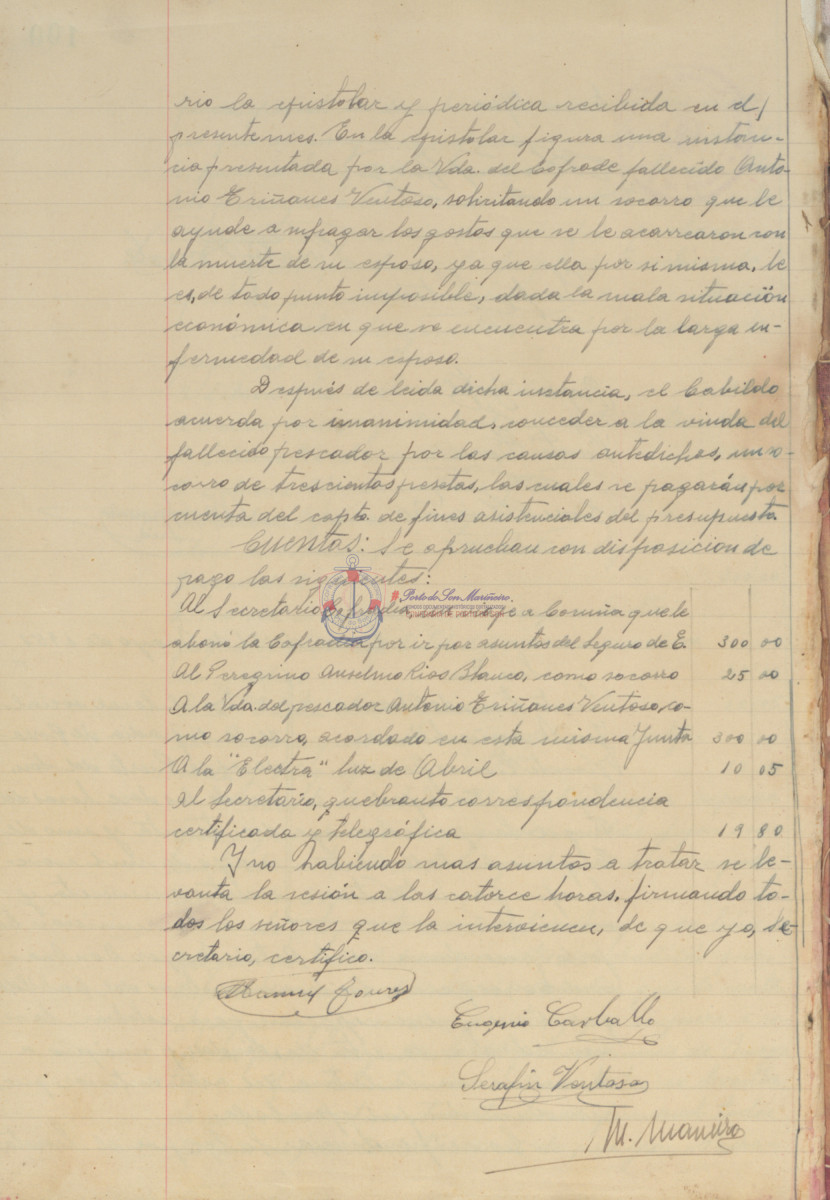 rio la epistolar y periódica recibida en el
presente mes. En la epistolar figura una instan-
cia presentada por la Vda. del Cofrade fallecido Anto-
nio Triñanes Ventoso, solicitando un socorro que le
ayude a sufragar los gastos que se le acarrearon con
la muerte de su esposo, ya que ella por si misma, le
es, de todo punto imposible, dada la mala situación
económica en que se encuentra por la larga en-
fermedad de su esposo.
Después de leida dicha instancia, el Cabildo
acuerda por unanimidad, conceder a la viuda del
fallecido pescador por las causas antedichas, un so-
corro de trescientas pesetas, las cuales se pagarán por
cuenta del capto. de fines asistenciales del presupuesto.
Cuentas: Se aprueban con disposicion de
pago las siguientes:
Al Secretario Cofradia a Coruña que le
abonó la Cofradia por ir por asuntos del Seguro de E. 300 00
Al Peregrino Anselmo Rios Blanco, como socorro 25 00
A la Vda. del pescador Antonio Triñanes Ventoso, co-
mo socorro, acordado en esta misma Junta 300 00
A la "Electra" luz de Abril 10 05
Al Secretario, quebranto correspondencia
certificada y telegráfica 19 80
Y no habiendo mas asuntos a tratar se le-
vanta la sesión a las catorce horas, firmando to-
dos los señores que la intervienen, de que yo, Se-
cretario, certifico.
Manuel Torres
Eugenio Carballo
Serafin Ventoso
M. Maneiro
Porto do Son Mariñeiro